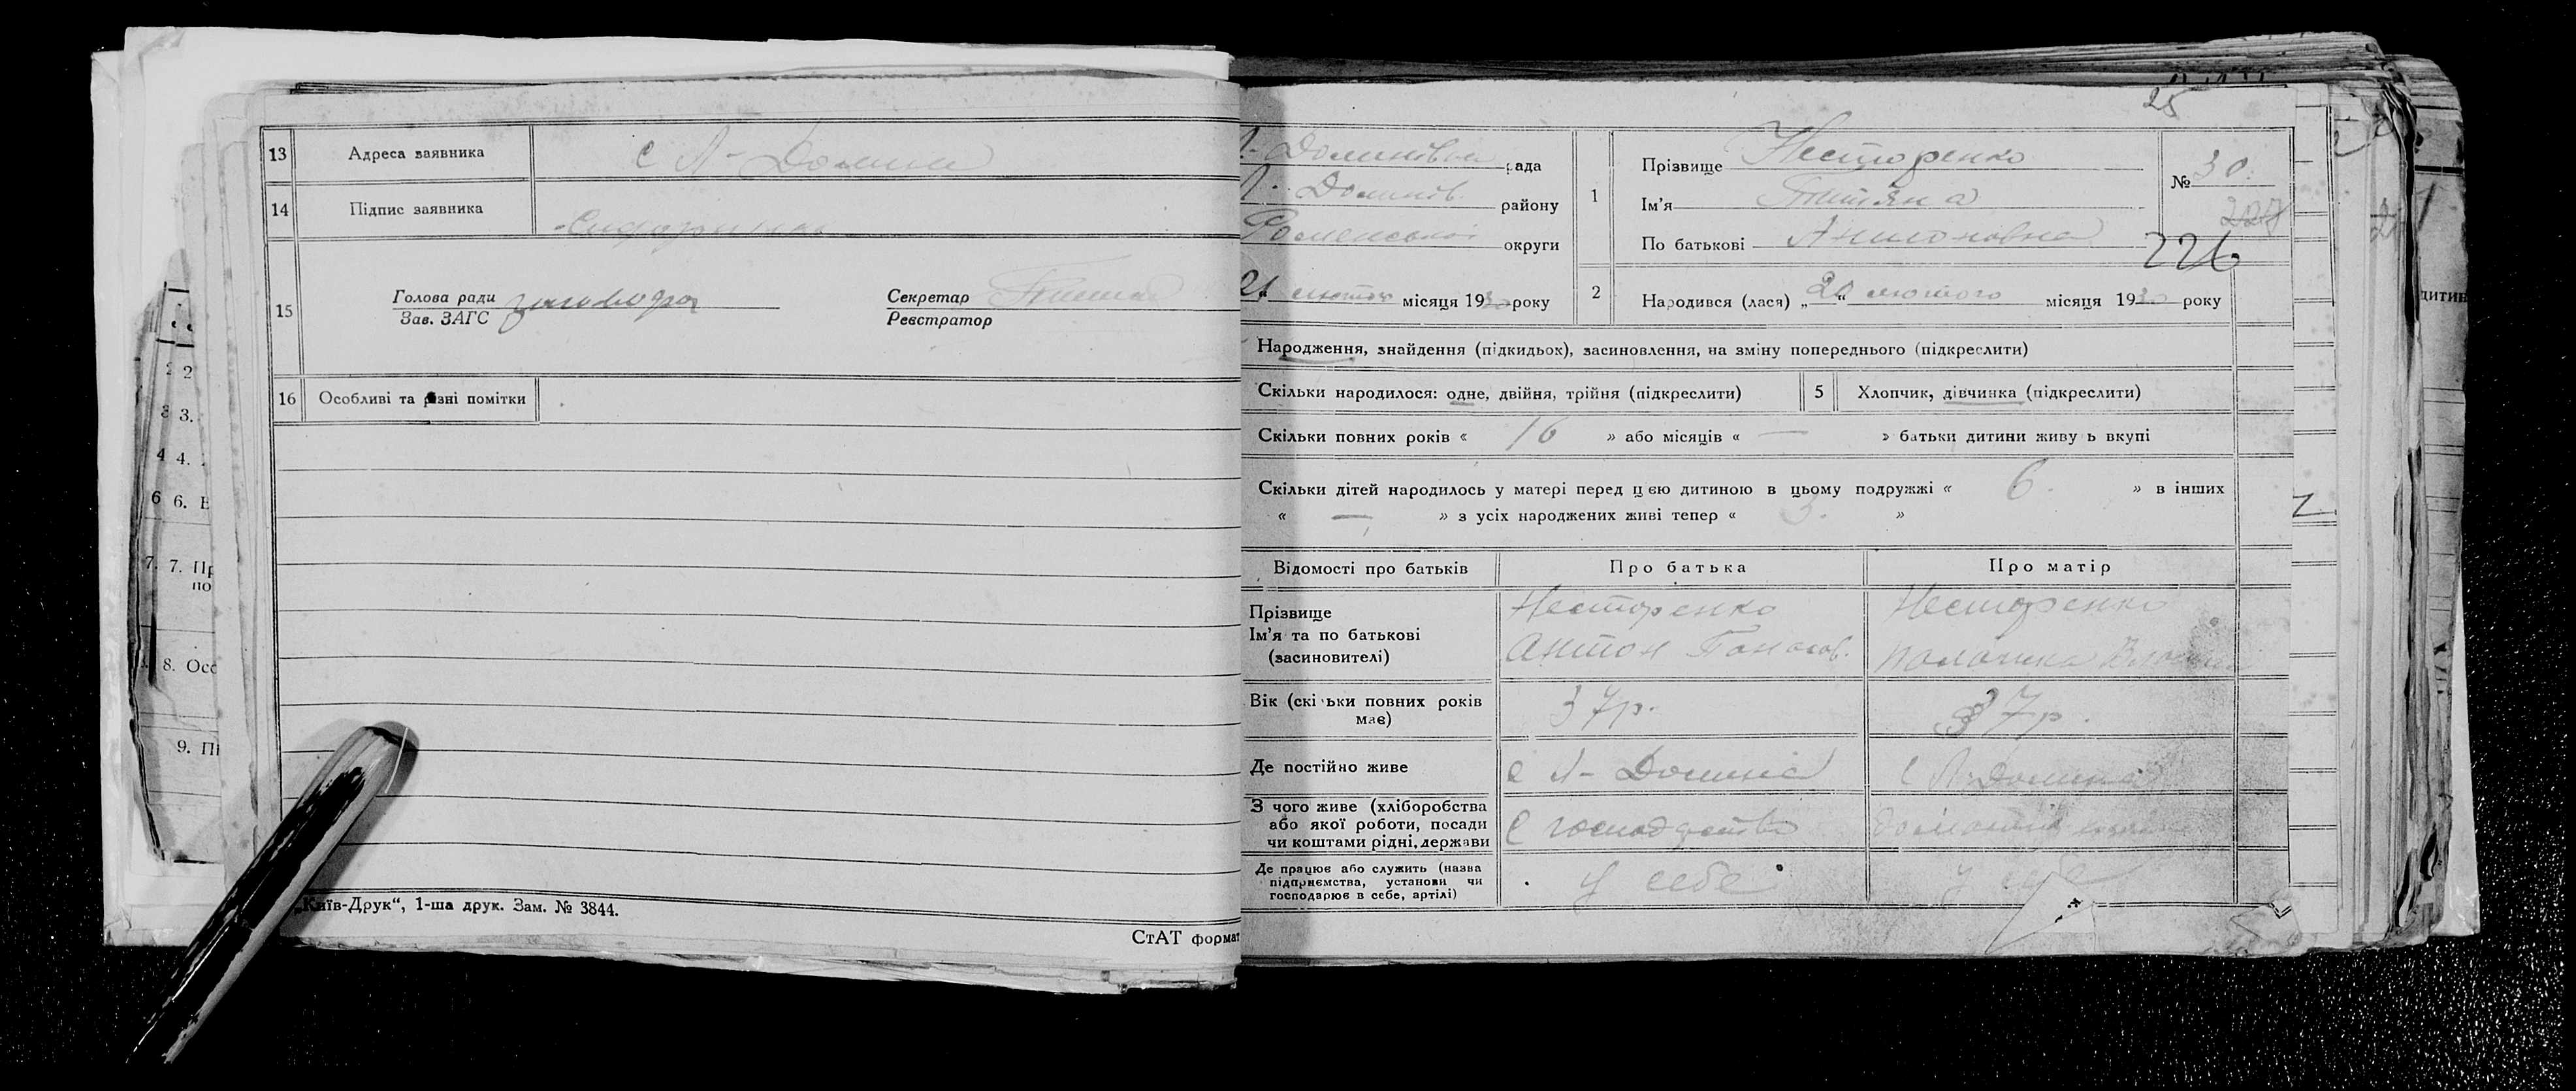 13 Адреса заявника с Л-Долина
14 Підпис заявника
15 Голова ради
Зав. ЗАГС
Секретар
Реєстратор
16 Особливі та різні помітки
2 2
3 3.
4 4.
6 6.
7. 7. Пр
по
8. Осс
9. Пі
„Київ-Друк“, 1-ша друк. Зам. № 3844.
СтАТ формат
25
Л-Долинівка рада
Л. Долинів. району
Роменської округи
21 лютого місяця 1930 року
1 Прізвище Несторенко
Ім'я Татьяна
По батькові Антоновна
№ 30.
227
226
2 Народився (лася) „20“ лютого місяця 1930 року
Народження, знайдення (підкидьок), засиновлення, на зміну попереднього (підкреслити)
Скільки народилося: одне, двійня, трійня (підкреслити) 5 Хлопчик, дівчинка (підкреслити)
Скільки повних років « 16 » або місяців « — » батьки дитини живу ь вкупі
Скільки дітей народилось у матері перед цєю дитиною в цьому подружжі « 6. » в інших
« — » з усіх народжених живі тепер « 3. »
Відомості про батьків Про батька Про матір
Прізвище Несторенко Несторенко
Ім'я та по батькові Антон Панасов.
(засиновителі)
Вік (скі ьки повних років 37р. 37р.
має)
Де постійно живе с Л-Долина с Л-Долина
З чого живе (хліборобства
або якої роботи, посади
чи коштами рідні, держави
Де працює або служить (назва
підприємства, установи чи
господарює в себе, артілі)
у себе у себе